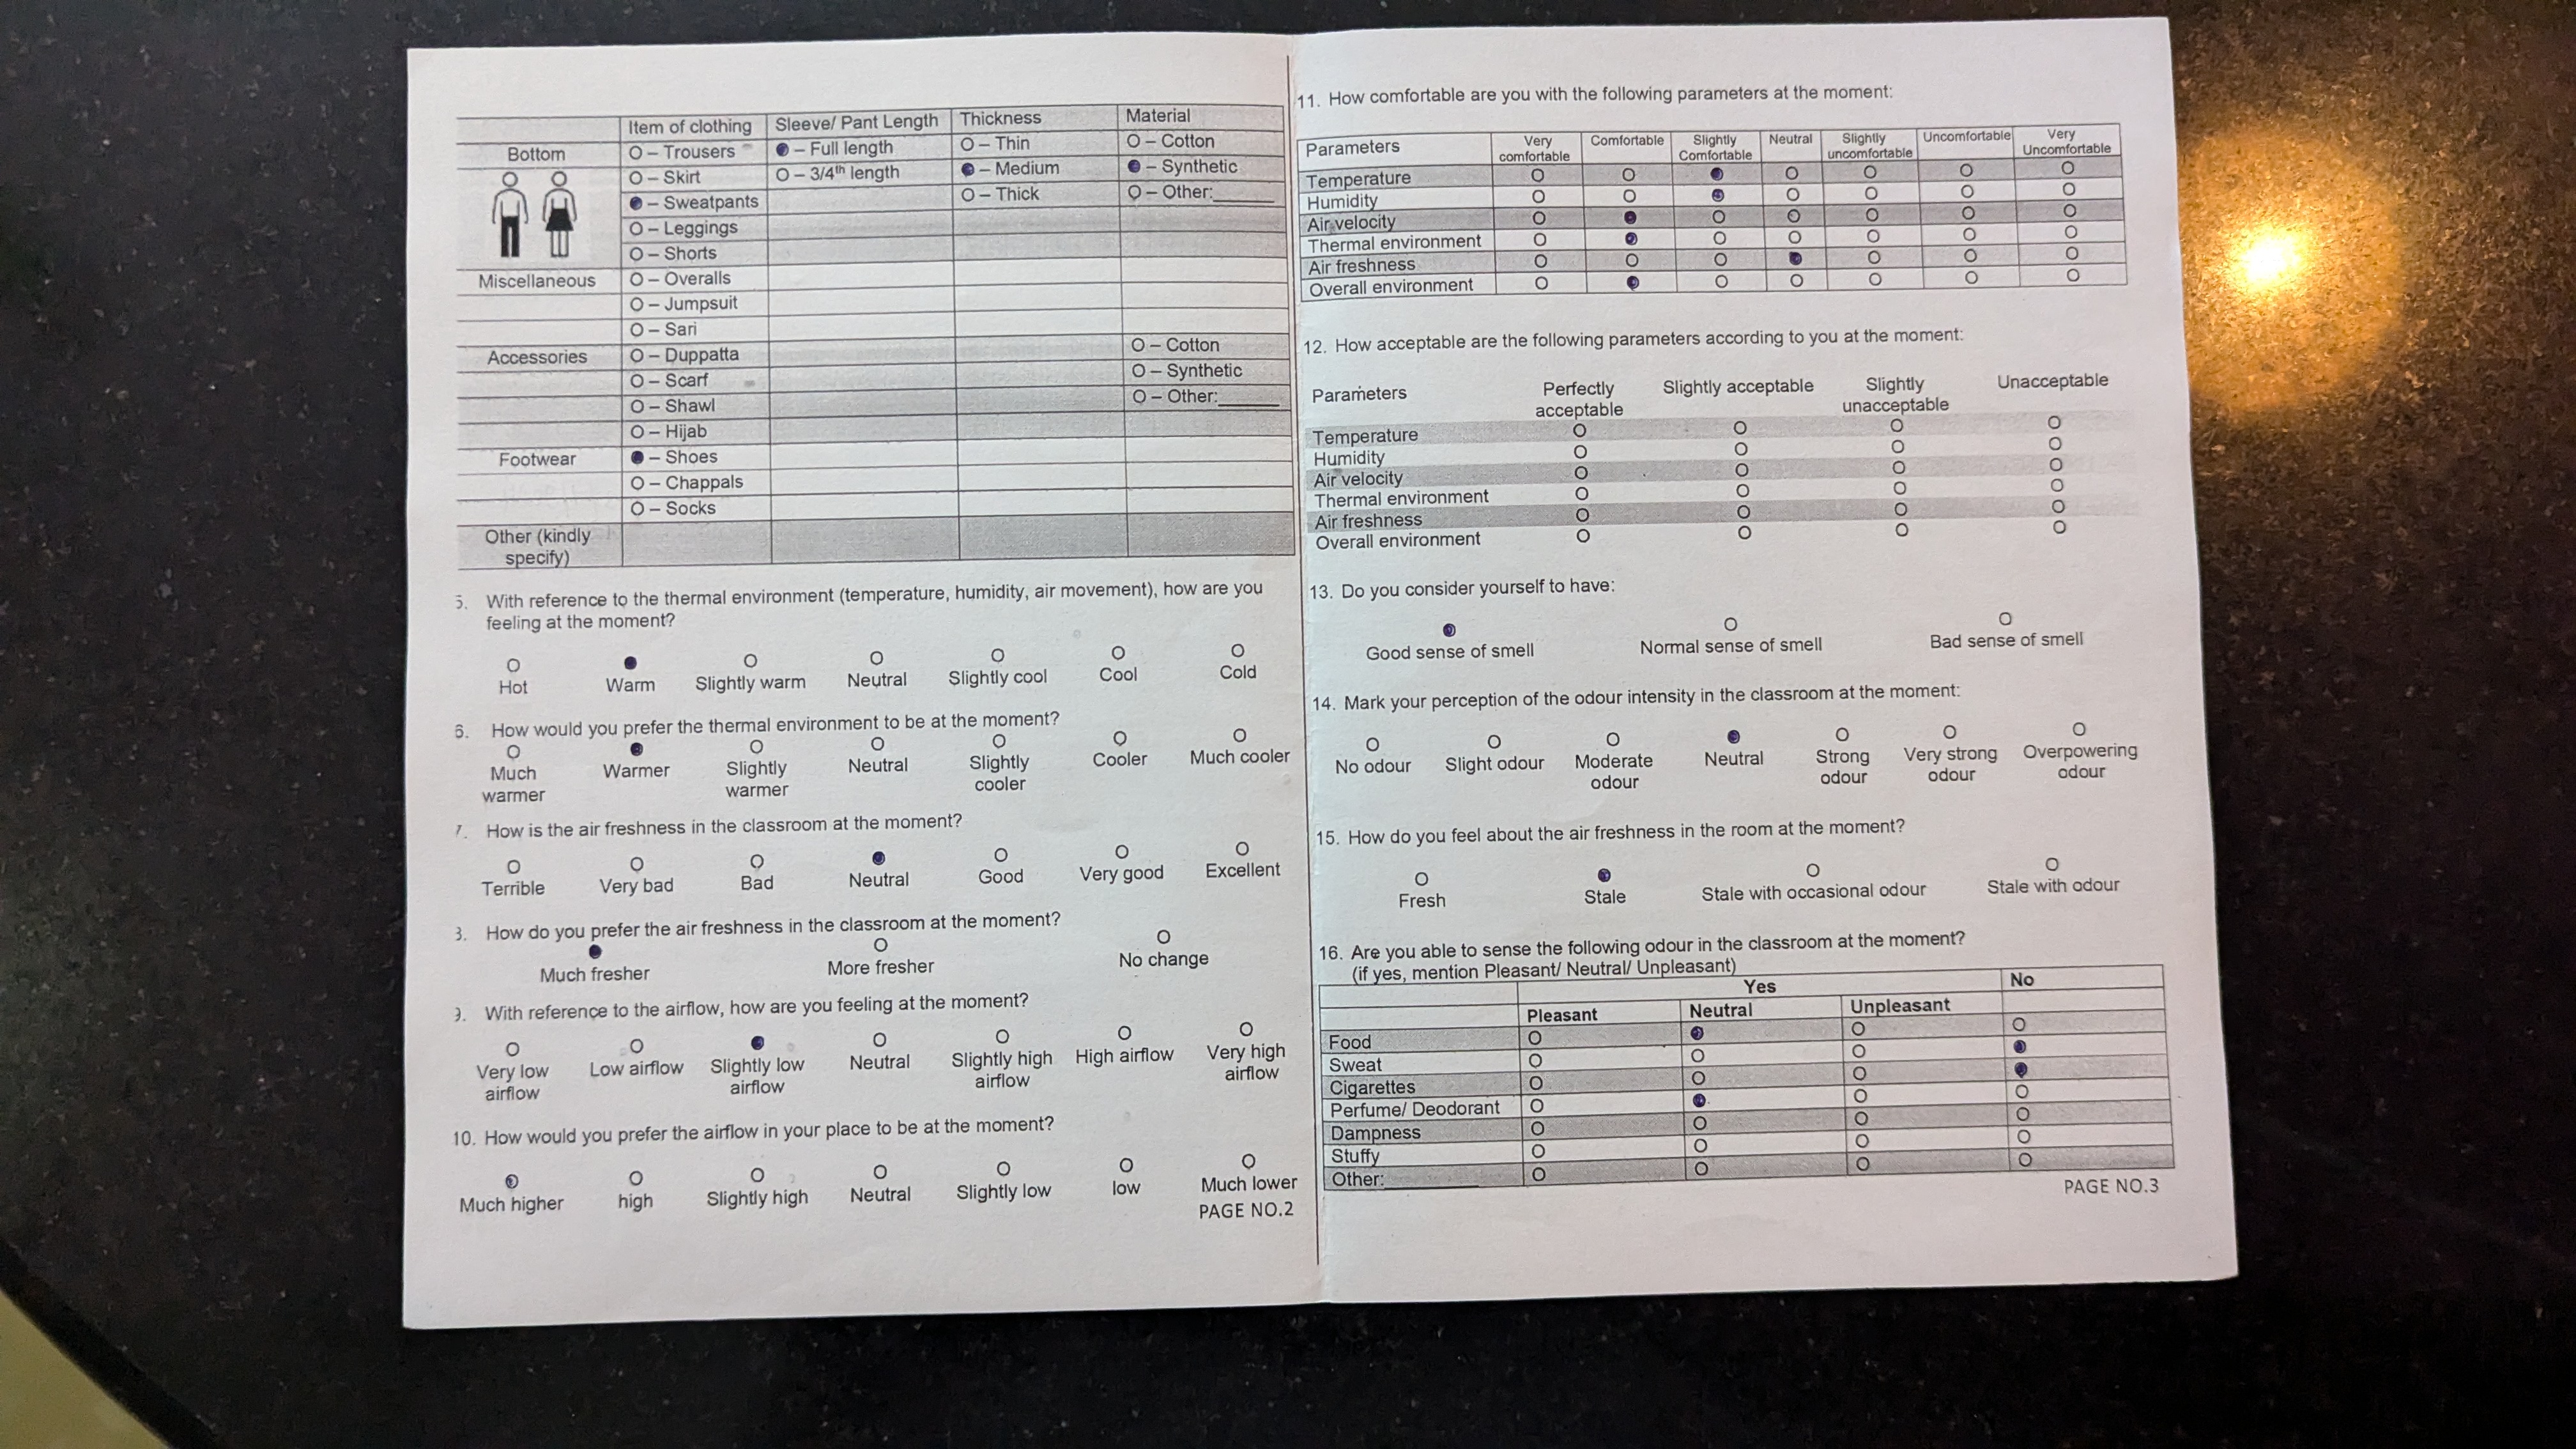 Item of clothing Sleeve/ Pant Length Thickness Material
Bottom O – Trousers – Full length O – Thin O – Cotton
O – Skirt O – 3/4th length – Medium – Synthetic
– Sweatpants O – Thick O – Other:______
O – Leggings
O – Shorts
Miscellaneous O – Overalls
O – Jumpsuit
O – Sari
Accessories O – Duppatta O – Cotton
O – Scarf O – Synthetic
O – Shawl O – Other:______
O – Hijab
Footwear – Shoes
O – Chappals
O – Socks
Other (kindly
specify)
With reference to the thermal environment (temperature, humidity, air movement), how are you
feeling at the moment?
Hot Warm Slightly warm Neutral Slightly cool Cool Cold
6. How would you prefer the thermal environment to be at the moment?
Much warmer Warmer Slightly warmer Neutral Slightly cooler Cooler Much cooler
How is the air freshness in the classroom at the moment?
Terrible Very bad Bad Neutral Good Very good Excellent
How do you prefer the air freshness in the classroom at the moment?
Much fresher More fresher No change
With reference to the airflow, how are you feeling at the moment?
Very low airflow Low airflow Slightly low airflow Neutral Slightly high airflow High airflow Very high airflow
10. How would you prefer the airflow in your place to be at the moment?
Much higher high Slightly high Neutral Slightly low low Much lower
PAGE NO.2
11. How comfortable are you with the following parameters at the moment:
Parameters Very comfortable Comfortable Slightly Comfortable Neutral Slightly uncomfortable Uncomfortable Very Uncomfortable
Temperature
Humidity
Air velocity
Thermal environment
Air freshness
Overall environment
12. How acceptable are the following parameters according to you at the moment:
Parameters Perfectly acceptable Slightly acceptable Slightly unacceptable Unacceptable
Temperature
Humidity
Air velocity
Thermal environment
Air freshness
Overall environment
13. Do you consider yourself to have:
Good sense of smell Normal sense of smell Bad sense of smell
14. Mark your perception of the odour intensity in the classroom at the moment:
No odour Slight odour Moderate odour Neutral Strong odour Very strong odour Overpowering odour
15. How do you feel about the air freshness in the room at the moment?
Fresh Stale Stale with occasional odour Stale with odour
16. Are you able to sense the following odour in the classroom at the moment?
(if yes, mention Pleasant/ Neutral/ Unpleasant)
Yes No
Pleasant Neutral Unpleasant
Food
Sweat
Cigarettes
Perfume/ Deodorant
Dampness
Stuffy
Other:
PAGE NO.3